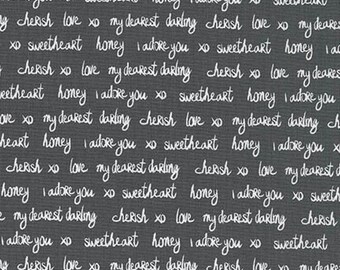 cherish xo love my dearest darling cherish
you xo sweetheart honey i adore you xo
cherish xo love my dearest darling
sweetheart honey i adore you xo sweetheart
love xo my dearest darling cherish xo love
honey i adore you xo sweetheart honey
xo love my dearest darling cherish xo love
honey i adore you xo sweetheart honey
my dearest darling cherish xo love my dearest
honey i adore you xo sweetheart honey i adore
my dearest darling cherish xo love my dearest
honey i adore you xo sweetheart honey
cherish love my dearest darling cherish xo